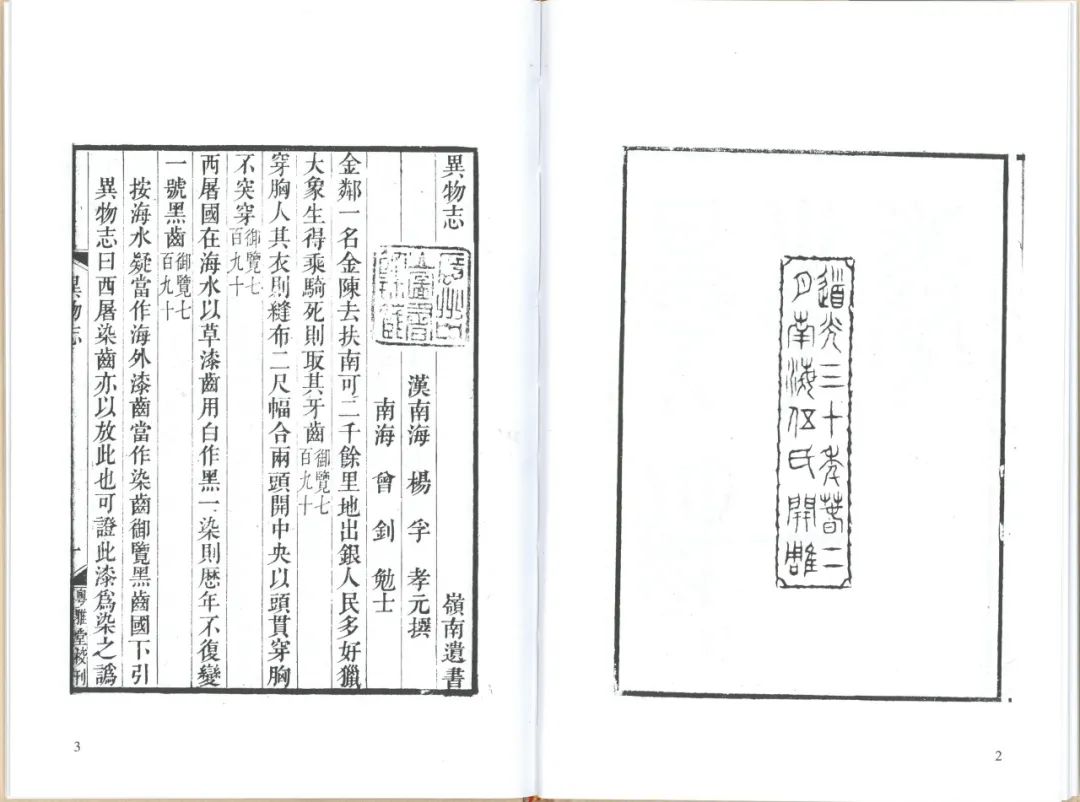 道光三十年春二
月南海伍氏開雕
2
異物志 嶺南遺書
漢南海 楊 孚 孝元撰
南海 曾 釗 勉士
金鄰一名金陳去扶南可二千餘里地出銀人民多好獵
大象生得乘騎死則取其牙齒御覽七百九十
穿胸人其衣則縫布二尺幅合兩頭開中央以頭貫穿胸
不突穿御覽七百九十
西屠國在海水以草漆齒用白作黑一染則歷年不復變
一號黑齒御覽七百九十
按海水疑當作海外漆齒當作染齒御覽黑齒國下引
異物志曰西屠染齒亦以放此也可證此漆爲染之譌
異物志 粵雅堂校刊
3